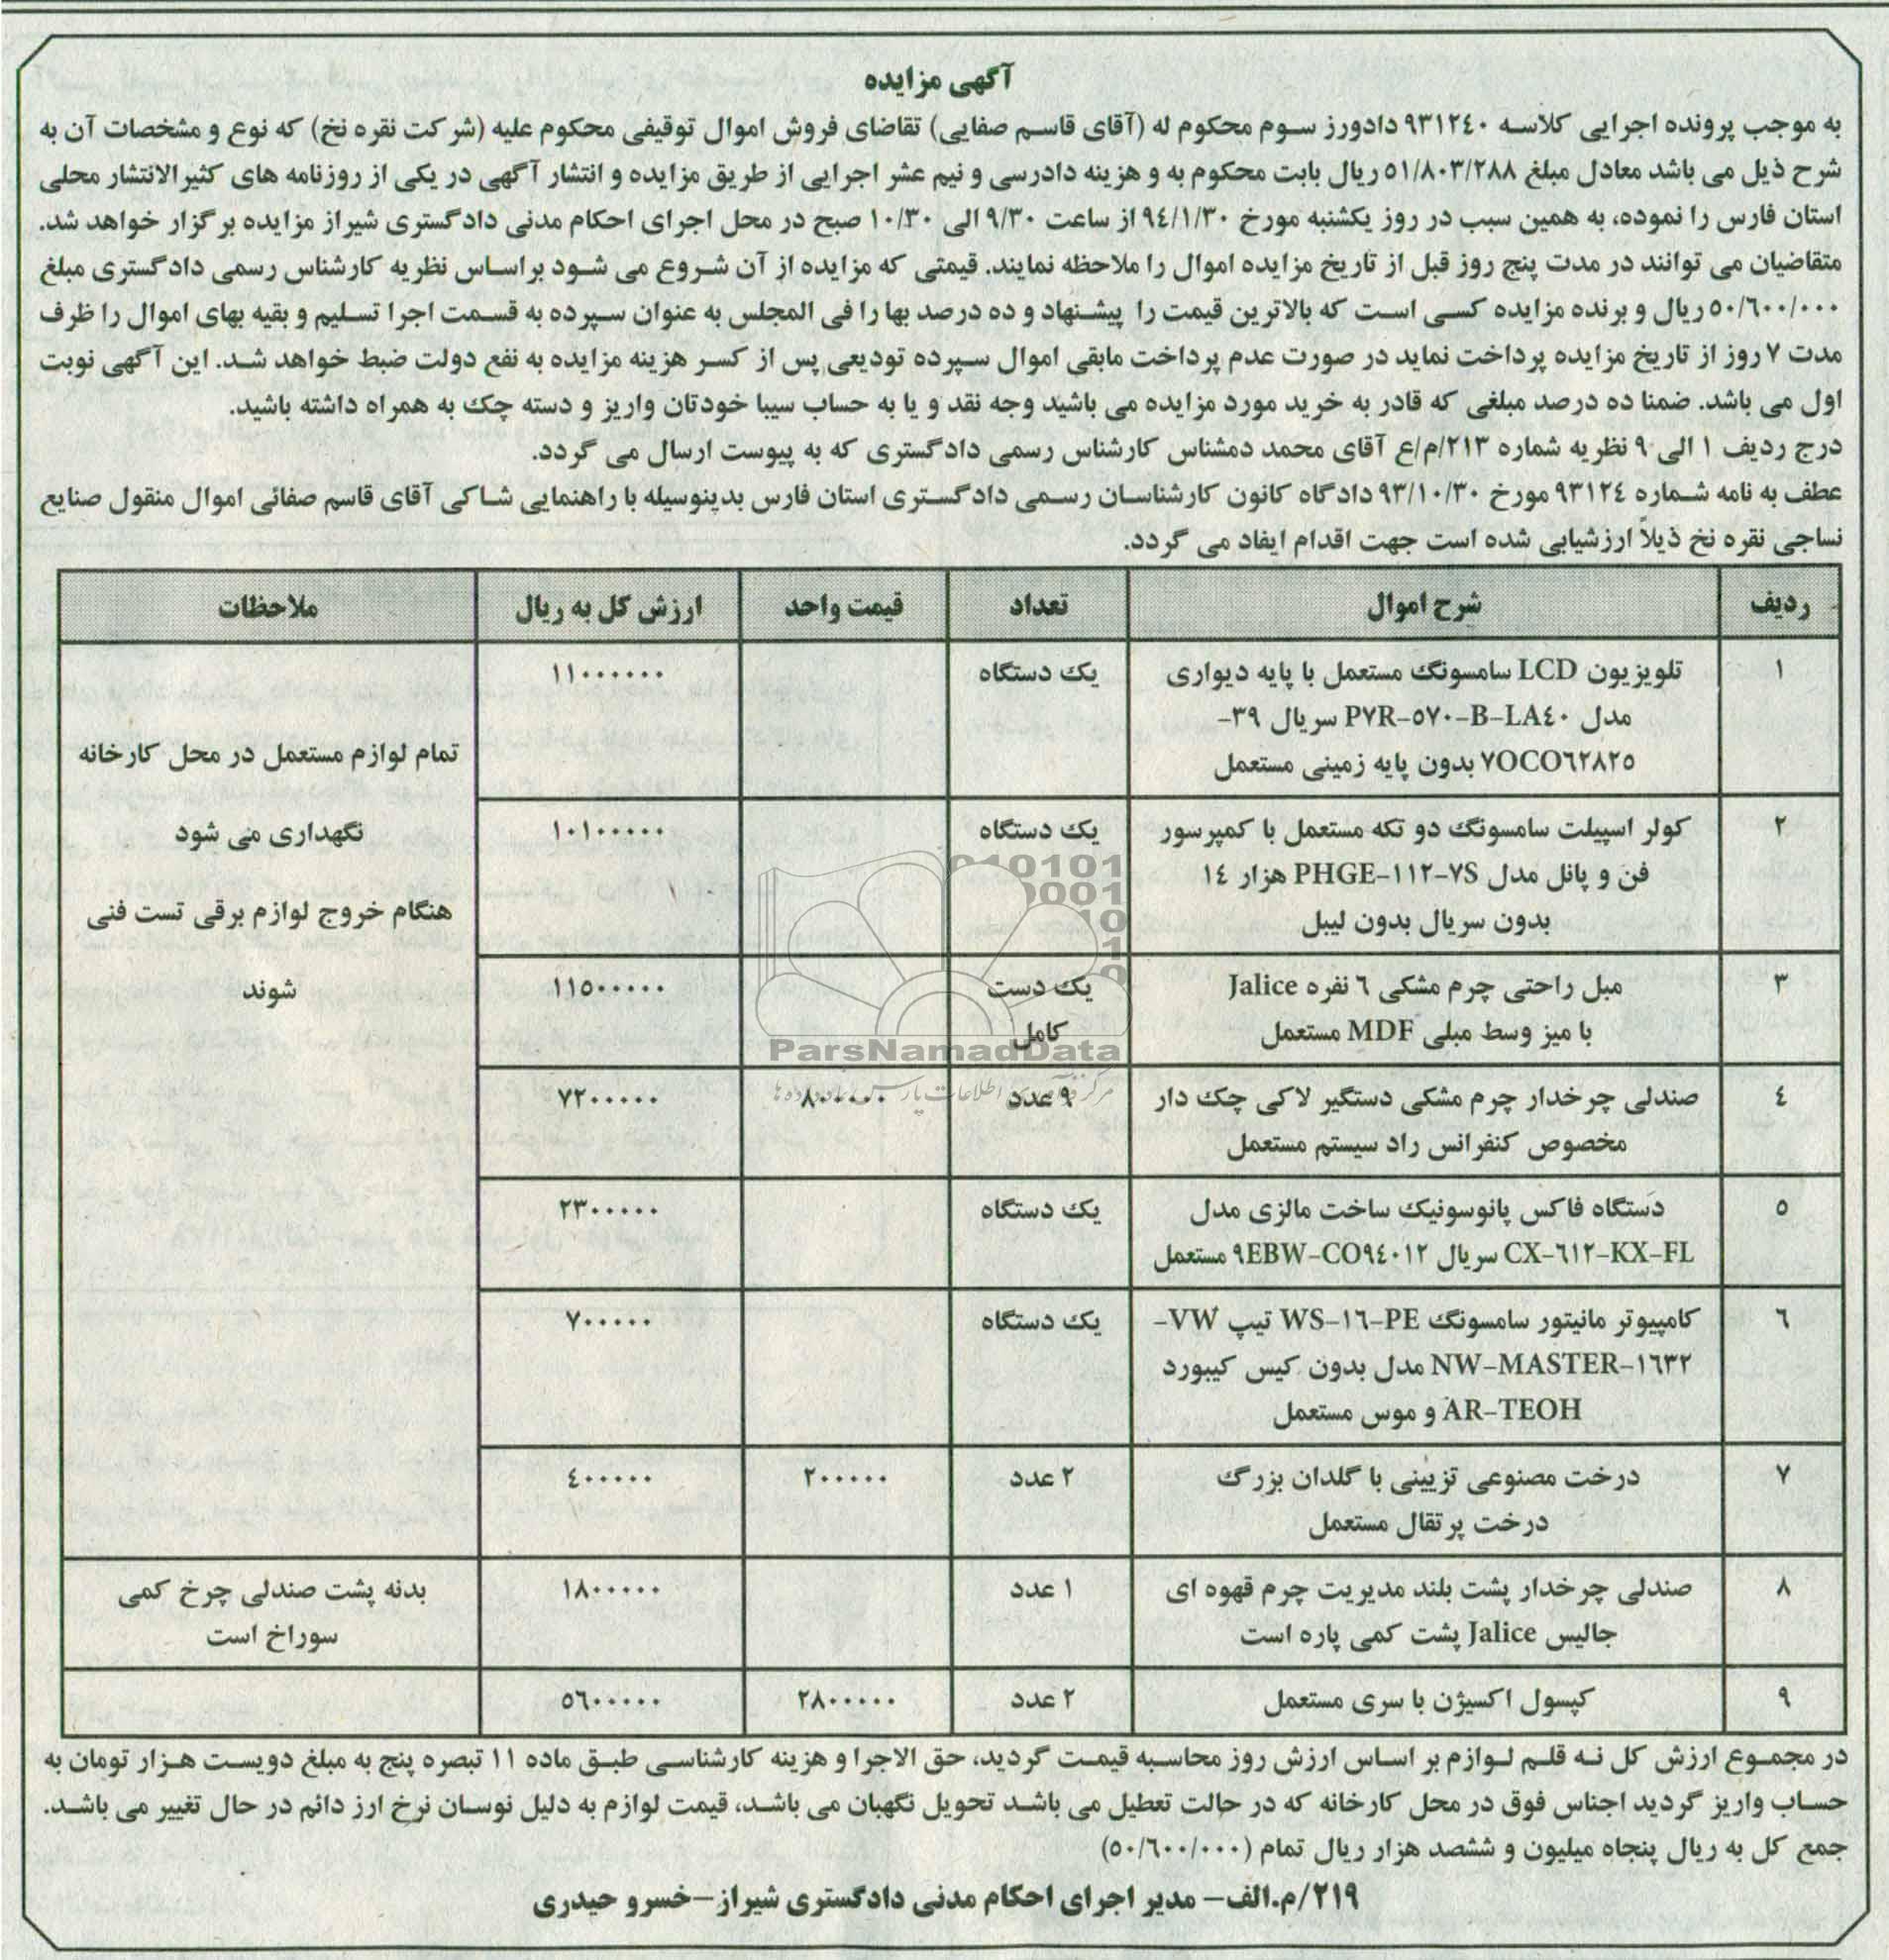 آگهی مزایده
به موجب پرونده اجرایی کلاسه ۹۳۱۲٤۰ دادورز سوم محکوم له (آقای قاسم صفایی) تقاضای فروش اموال توقیفی محکوم علیه (شرکت نقره نخ) که نوع و مشخصات آن به
شرح ذیل می باشد معادل مبلغ ۵۱/۸۰۳/۲۸۸ ریال بابت محکوم به و هزینه دادرسی و نیم عشر اجرایی از طریق مزایده و انتشار آگهی در یکی از روزنامه های کثیرالانتشار محلی
استان فارس را نموده، به همین سبب در روز یکشنبه مورخ ۹٤/۱/۳۰ از ساعت ۹/۳۰ الی ۱۰/۳۰ صبح در محل اجرای احکام مدنی دادگستری شیراز مزایده برگزار خواهد شد.
متقاضیان می توانند در مدت پنج روز قبل از تاریخ مزایده اموال را ملاحظه نمایند. قیمتی که مزایده از آن شروع می شود براساس نظریه کارشناس رسمی دادگستری مبلغ
۵۰/٦۰۰/۰۰۰ ریال و برنده مزایده کسی است که بالاترین قیمت را پیشنهاد و ده درصد بها را فی المجلس به عنوان سپرده به قسمت اجرا تسلیم و بقیه بهای اموال را ظرف
مدت ۷ روز از تاریخ مزایده پرداخت نماید در صورت عدم پرداخت مابقی اموال سپرده تودیعی پس از کسر هزینه مزایده به نفع دولت ضبط خواهد شد. این آگهی نوبت
اول می باشد. ضمنا ده درصد مبلغی که قادر به خرید مورد مزایده می باشید وجه نقد و یا به حساب سیبا خودتان واریز و دسته چک به همراه داشته باشید.
درج ردیف ۱ الی ۹ نظریه شماره ۲۱۳/م/ع آقای محمد دمشناس کارشناس رسمی دادگستری که به پیوست ارسال می گردد.
عطف به نامه شماره ۹۳۱۲٤ مورخ ۹۳/۱۰/۳۰ دادگاه کانون کارشناسان رسمی دادگستری استان فارس بدینوسیله با راهنمایی شاکی آقای قاسم صفائی اموال منقول صنایع
نساجی نقره نخ ذیلاً ارزشیابی شده است جهت اقدام ایفاد می گردد.
ردیف شرح اموال تعداد قیمت واحد ارزش کل به ریال ملاحظات
۱ تلویزیون LCD سامسونگ مستعمل با پایه دیواری یک دستگاه ۱۱۰۰۰۰۰۰
مدل P۷R-۵۷۰-B-LA٤۰ سریال ۳۹-
۷OCO٦۲۸۲۵ بدون پایه زمینی مستعمل
تمام لوازم مستعمل در محل کارخانه
نگهداری می شود
هنگام خروج لوازم برقی تست فنی
شوند
۲ کولر اسپیلت سامسونگ دو تکه مستعمل با کمپرسور یک دستگاه ۱۰۱۰۰۰۰۰
فن و پانل مدل PHGE-۱۱۲-۷S هزار ۱٤
بدون سریال بدون لیبل
۳ مبل راحتی چرم مشکی ٦ نفره Jalice یک دست ۱۱۵۰۰۰۰۰
با میز وسط مبلی MDF مستعمل کامل
٤ صندلی چرخدار چرم مشکی دستگیر لاکی چک دار ۹ عدد ۸۰۰۰۰۰ ۷۲۰۰۰۰۰
مخصوص کنفرانس راد سیستم مستعمل
۵ دستگاه فاکس پانوسونیک ساخت مالزی مدل یک دستگاه ۲۳۰۰۰۰۰
CX-٦۱۲-KX-FL سریال ۹EBW-CO۹٤۰۱۲ مستعمل
٦ کامپیوتر مانیتور سامسونگ WS-۱٦-PE تیپ VW- یک دستگاه ۷۰۰۰۰۰
NW-MASTER-۱٦۳۲ مدل بدون کیس کیبورد
AR-TEOH و موس مستعمل
۷ درخت مصنوعی تزیینی با گلدان بزرگ ۲ عدد ۲۰۰۰۰۰ ٤۰۰۰۰۰
درخت پرتقال مستعمل
۸ صندلی چرخدار پشت بلند مدیریت چرم قهوه ای ۱ عدد ۱۸۰۰۰۰۰ بدنه پشت صندلی چرخ کمی
جالیس Jalice پشت کمی پاره است سوراخ است
۹ کپسول اکسیژن با سری مستعمل ۲ عدد ۲۸۰۰۰۰۰ ۵٦۰۰۰۰۰
در مجموع ارزش کل نه قلم لوازم بر اساس ارزش روز محاسبه قیمت گردید، حق الاجرا و هزینه کارشناسی طبق ماده ۱۱ تبصره پنج به مبلغ دویست هزار تومان به
حساب واریز گردید اجناس فوق در محل کارخانه که در حالت تعطیل می باشد تحویل نگهبان می باشد، قیمت لوازم به دلیل نوسان نرخ ارز دائم در حال تغییر می باشد.
جمع کل به ریال پنجاه میلیون و ششصد هزار ریال تمام (۵۰/٦۰۰/۰۰۰)
۲۱۹/م.الف- مدیر اجرای احکام مدنی دادگستری شیراز-خسرو حیدری
ParsNamadData